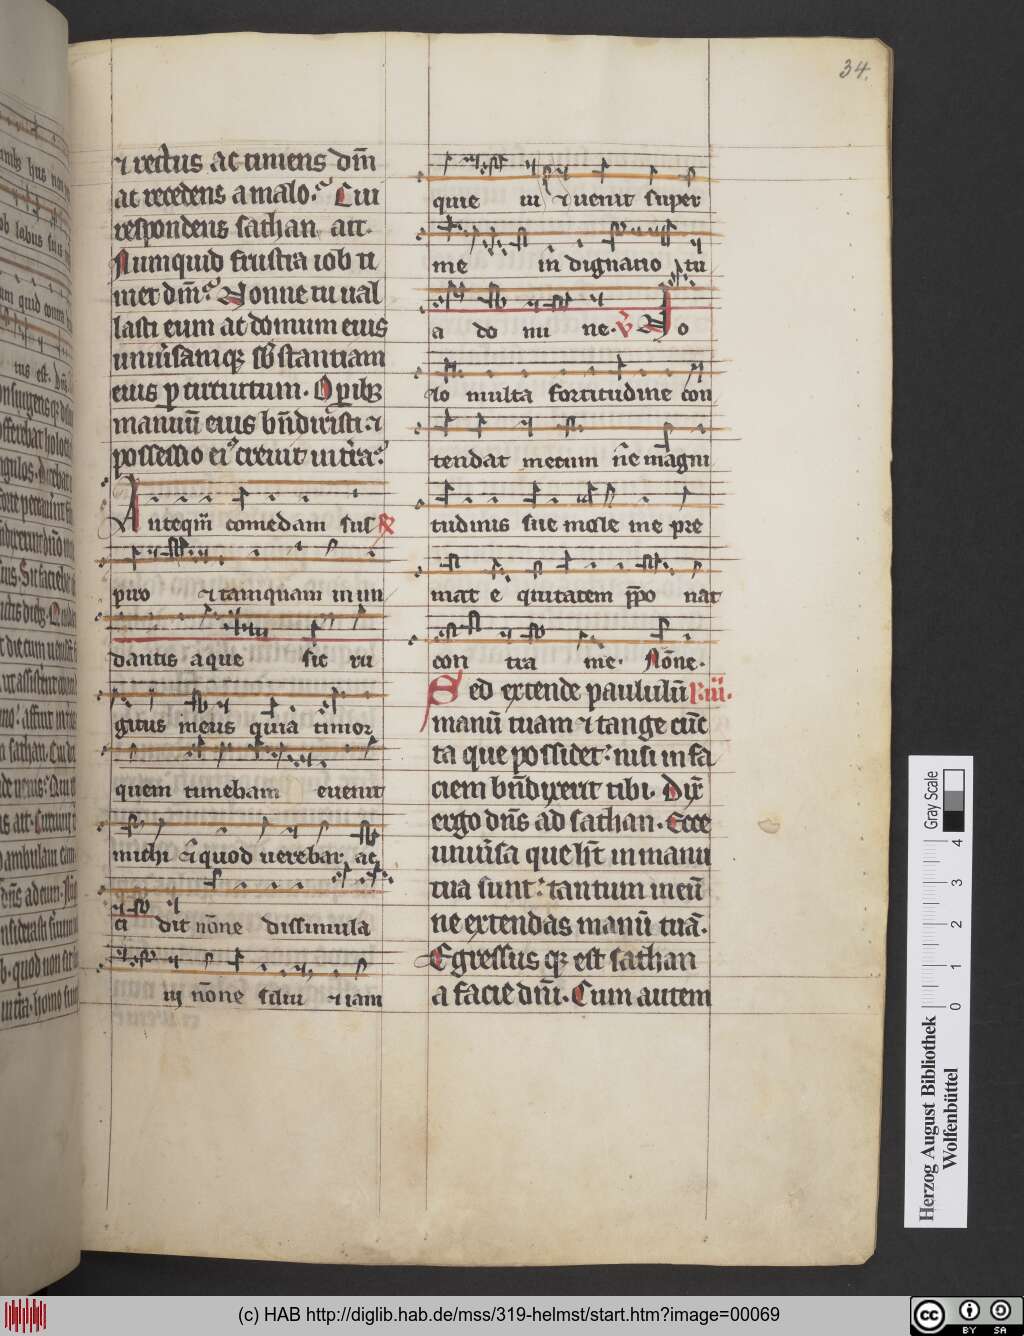 34.
⁊ rectus ac timens dn̄m
ac recedens a malo. Cui
respondens sathan ait.
Numquid frustra iob ti
met dn̄m. Nonne tu ual
lasti eum ac domum eius
uniu̅sam qꝫ sb̅stantiam
eius ꝑ circuitum. Opibꝫ
manuū eius bn̄dixisti ⁊
possessio ei⁹ creuit in t̅ra.
Anteqm̄ comedam sus ℟
piro ⁊ tamquam in un
dantis aque sic ru
gitus meus quia timor
quem timebam euenit
michi ⁊ quod uerebar ac
ci dit nōne dissimula
ui nōne silui ⁊ iam
quie ui ⁊ uenit super
me in dignatio tu
a do mi ne. ℣ No
lo multa fortitudine con
tendat mecum n̄e magni
tudinis sue mole me pre
mat e quitatem ꝓpo nat
con tra me. Nōne.
Sed extende paululū
manū tuam ⁊ tange cūc
ta que possidet: nisi in fa
ciem bn̄dixerit tibi. Dix̅
ergo dn̄s ad sathan. Ecce
uniu̅sa que h̅t in manu
tua sunt: tantum in eū
ne extendas manū tuā.
Egressus qꝫ est sathan
a facie dn̄i. Cum autem
Gray Scale
0 1 2 3 4
Herzog August Bibliothek
Wolfenbüttel
(c) HAB http://diglib.hab.de/mss/319-helmst/start.htm?image=00069
cc BY SA